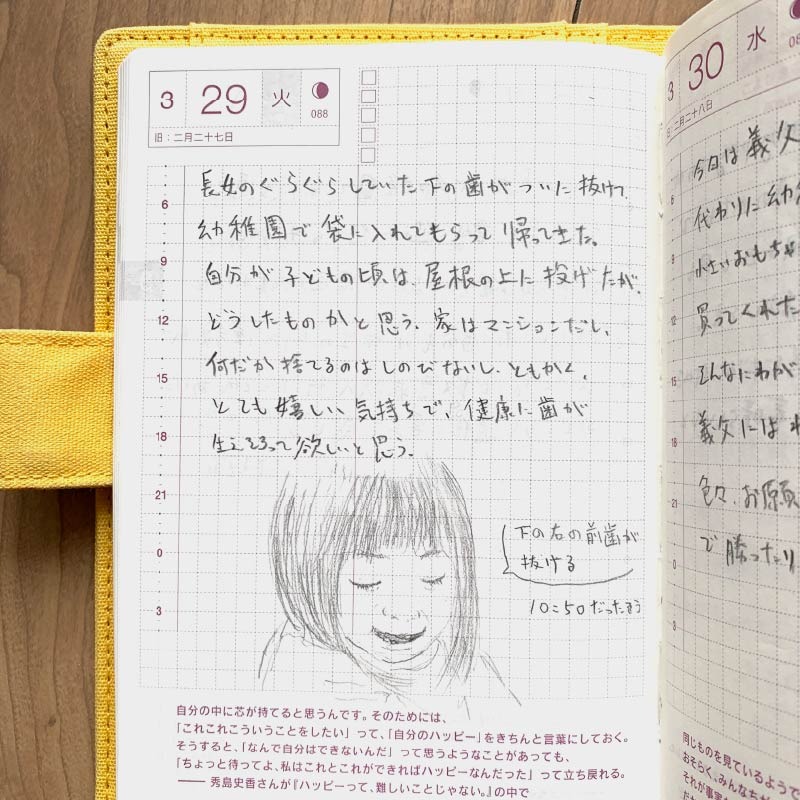 3 29 火
088
旧：二月二十七日
長女のぐらぐらしていた下の歯がついに抜けて、
幼稚園で袋に入れてもらって帰ってきた。
自分が子どもの頃は、屋根の上に投げたが、
どうしたものかと思う。家はマンションだし、
何だか捨てるのはしのびないし、ともかく、
とても嬉しい気持ちで、健康に歯が
生えそろって欲しいと思う。
6
9
12
15
18
21
0
3
下の右の前歯が
抜ける
10:50だったそう
自分の中に芯が持てると思うんです。そのためには、
「これこれこういうことをしたい」って、「自分のハッピー」をきちんと言葉にしておく。
そうすると、「なんで自分はできないんだ」って思うようなことがあっても、
「ちょっと待ってよ、私はこれとこれができればハッピーなんだった」って立ち戻れる。
―― 秀島史香さんが『ハッピーって、難しいことじゃない。』の中で
3 30 水
088
旧：二月二十八日
今日は義父
代わりに幼
小さいおもちゃ
買ってくれた
そんなにわが
義父には
色々、お願
で勝ったり
同じものを見ているようで
おそらく、みんなちが
それが事実